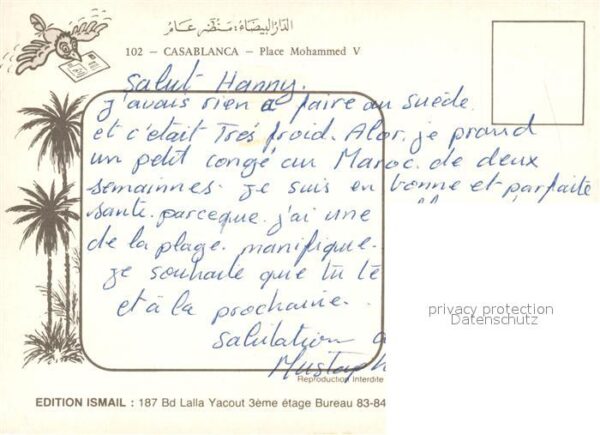 الدار البيضاء: منظر عام
102 – CASABLANCA – Place Mohammed V
Salut Hanny.
j'avais rien a faire au suède
et c'était Trés froid. Alor. je prand
un petit congé au Maroc. de deux
semainnes. Je suis en bonne et parfaite
santé. parceque. j'ai une
de la plage. manifique.
je souhaite que tu te
et à la prochaine.
privacy protection
Datenschutz
Salutation
Mustaph
Reproduction Interdite
EDITION ISMAIL : 187 Bd Lalla Yacout 3ème étage Bureau 83-84